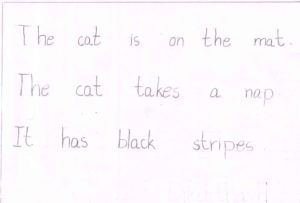 The cat is on the mat.
The cat takes a nap
It has black stripes.